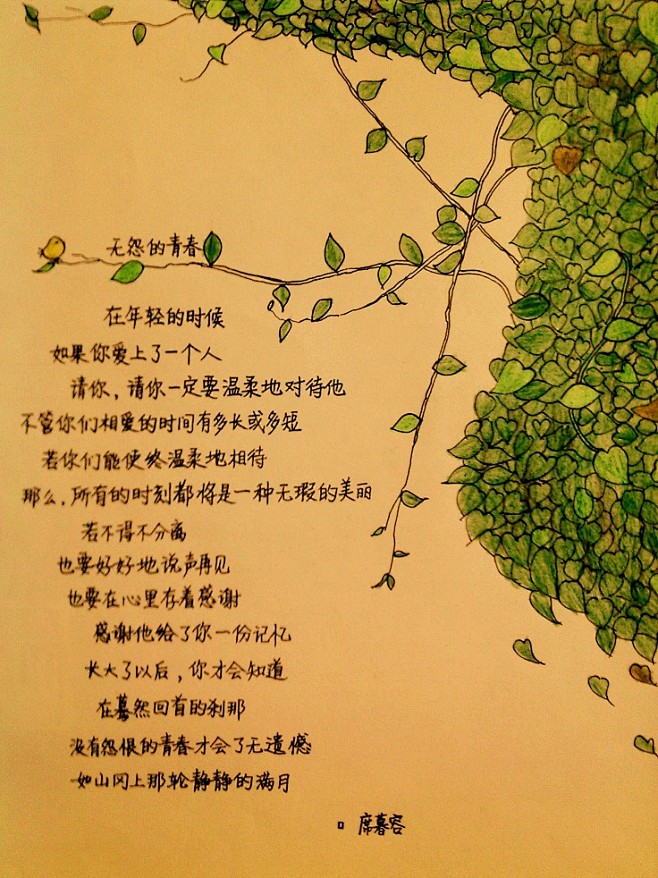 无怨的青春
在年轻的时候
如果你爱上了一个人
请你，请你一定要温柔地对待他
不管你们相爱的时间有多长或多短
若你们能使终温柔地相待
那么，所有的时刻都将是一种无瑕的美丽
若不得不分离
也要好好地说声再见
也要在心里存着感谢
感谢他给了你一份记忆
长大了以后，你才会知道
在蓦然回首的刹那
没有怨恨的青春才会了无遗憾
如山冈上那轮静静的满月
席慕容